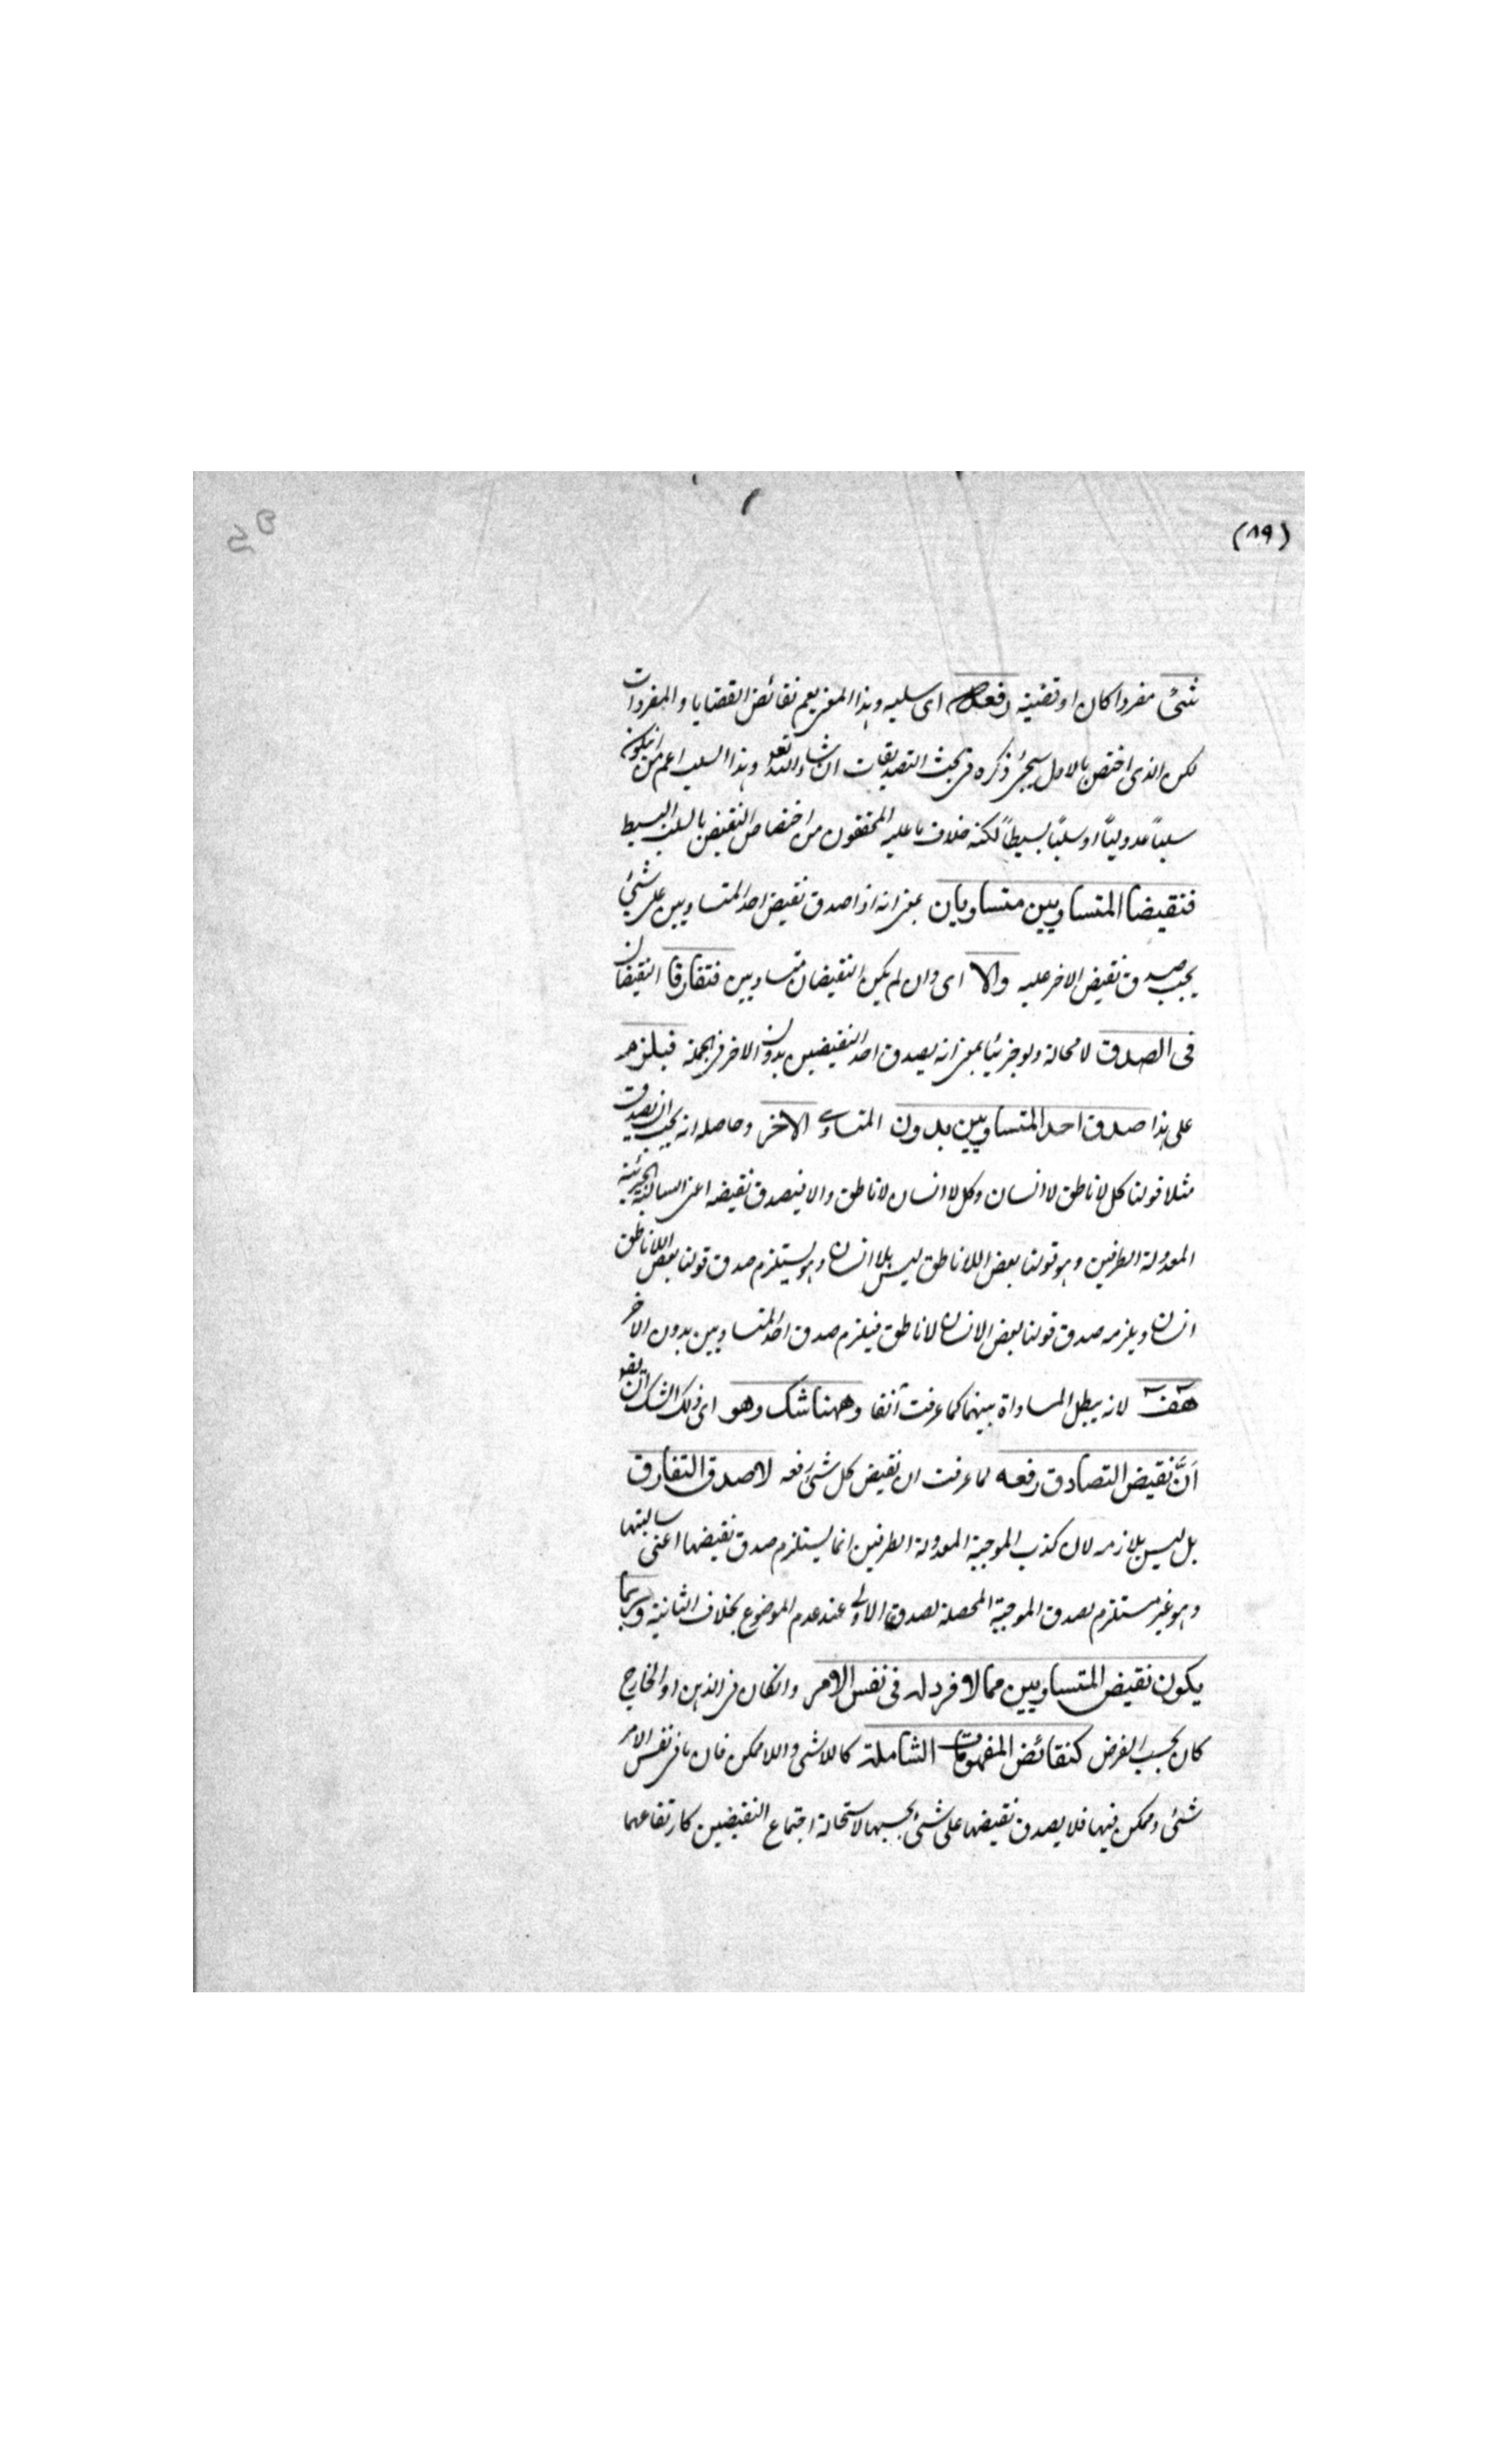 (٨٩)
شئ مفردا كان او قضية رفعه اى سلبه وهذا المعنى يعم نقائض القضايا والمفردات
لكن الذى اختص بالاول سيجئ ذكره فى بحث التصديقات ان شاء الله تعالى وهذا السلب اعم من ان يكون
سلباً عدولياً او سلبًا بسيطاً لكنه خلاف ما عليه المحققون من اختصاص النقيض بالسلب البسيط
فنقيضا المتساويين متساويان بمعنى انه اذا صدق نقيض احد المتساويين على شئ
يجب صدق نقيض الاخر عليه والا اى وان لم يكن النقيضان متساويين فتفارقا النقيضان
فى الصدق لا محالة ولو جزئيا بمعنى انه يصدق احد النقيضين بدون الاخر فى الجملة فيلزم
على هذا صدق احد المتساويين بدون المتساوى الاخر وحاصله انه يجب ان يصدق
مثلا قولنا كل لا ناطق لا انسان وكل لا انسان لا ناطق والا فيصدق نقيضه اعنى السالبة الجزئية
المعدولة الطرفين وهو قولنا بعض اللاناطق ليس بلا انسان وهو يستلزم صدق قولنا بعض اللاناطق
انسان ويلزمه صدق قولنا بعض الانسان لا ناطق فيلزم صدق احد المتساويين بدون الاخر
هف لانه يبطل المساواة بينهما كما عرفت آنفا وههنا شك وهو اى ذلك الشك ان يقو
اَنَّ نقيض التصادق رفعه لما عرفت ان نقيض كل شئ رفعه لا صدق التفارق
بل ليس بلازمه لان كذب الموجبة المعدولة الطرفين انما يستلزم صدق نقيضها اعنى سالبتها
وهو غير مستلزم بصدق الموجبة المحصلة لصدق الاولى عند عدم الموضوع بخلاف الثانية وربما
يكون نقيض المتساويين مما لا فرد له فى نفس الامر وان كان فى الذهن او الخارج
كان بحسب الفرض كنقائض المفهومات الشاملة كاللاشى واللاممكن فان ما فى نفس الامر
شئ وممكن فيها فلا يصدق نقيضها على شئ بحسبها لاستحالة اجتماع النقيضين كارتفاعهما